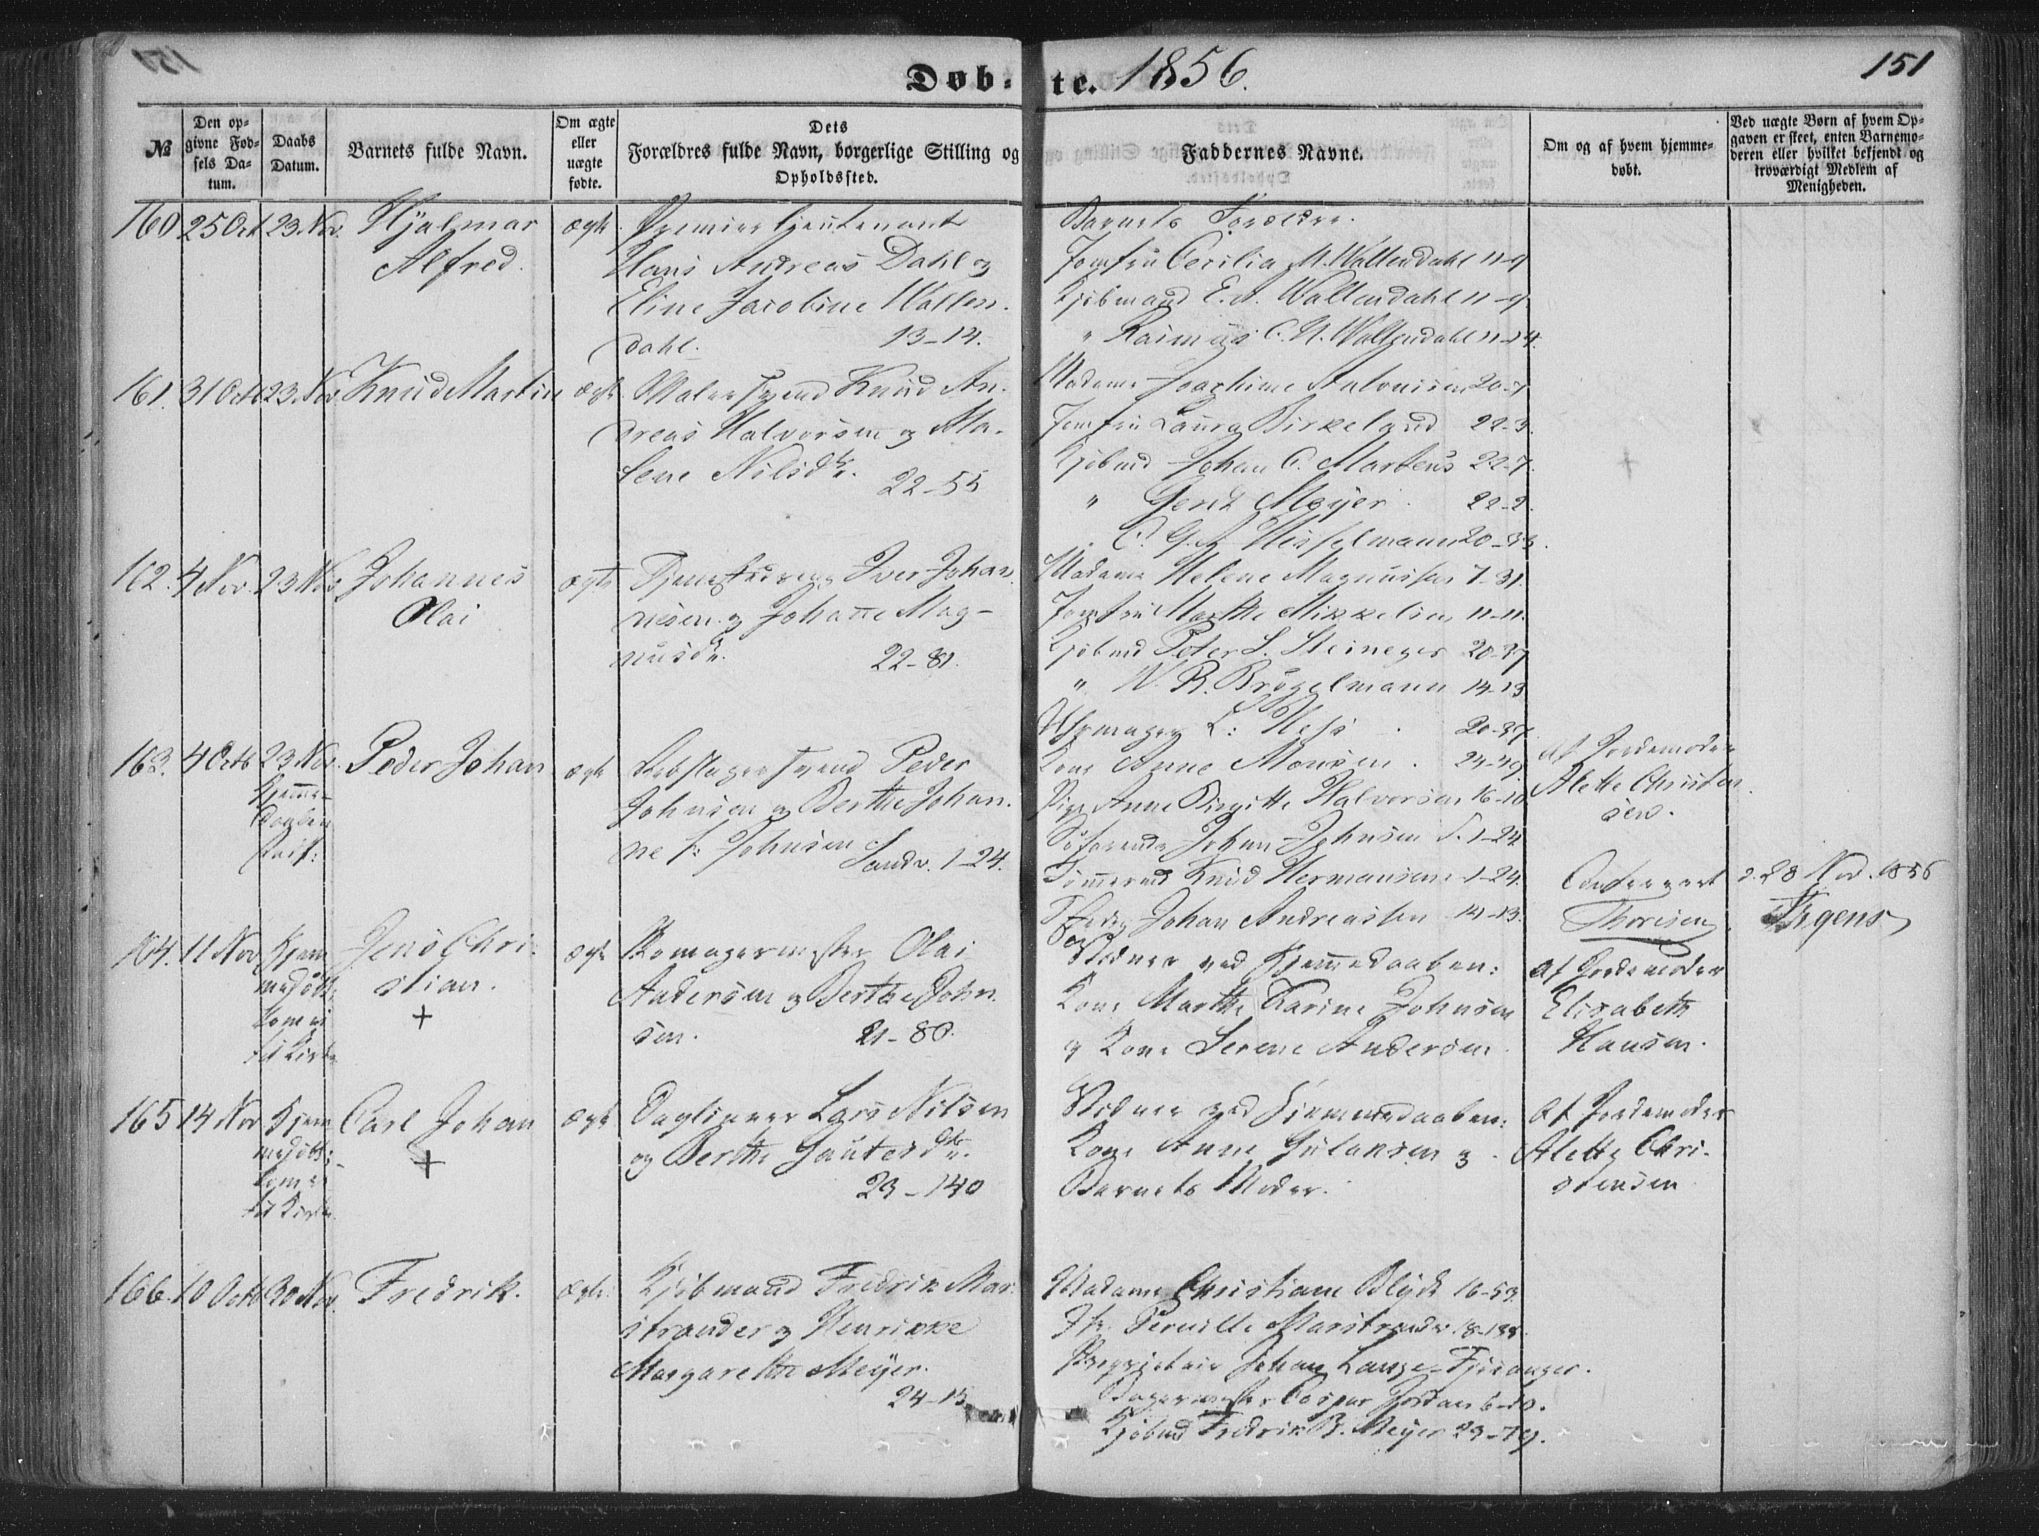 151
Døb-te. 1856.
№
Den op-
givne Fød-
sels Da-
tum.
Daabs
Datum.
Barnets fulde Navn.
Om ægte
eller
uægte
fødte.
Dets
Forældres fulde Navn, borgerlige Stilling og
Opholdssted.
Faddernes Navne.
Om og af hvem hjemme-
døbt.
Ved uægte Børn af hvem Op-
gaven er skeet, enten Barnemo-
deren eller hvilket bekjendt og
troværdigt Medlem af
Menigheden.
160 25 Oct 23 Nov. Hjalmar
Alfred.
ægte
Premierlieutenant
Hans Andreas Dahl og
Eline Jacobine Wallen-
dahl. 13-14.
Barnets Forældre.
Jomfru Cecilia M. Wallendahl 11-9
Kjøbmand E. A. Wallendahl 11-9
" Rasmus C. N. Wallendahl 11-14.
161. 31 Octb 23 Nov Knud Martin
ægte
Malersvend Knud An-
dreas Halvorsen og Ma-
lene Nilsdtr. 22-55
Madame Joachime Antonisen 20-7
Jomfru Laura Birkeland 22-3.
Kjøbmd Johan C. Martens 22-7.
" Gerd Meyer 22-2
C. G. A. Hisselmann 20-33.
162. 4 Nov. 23 Nov Johannes
Olai
ægte
Tjenestedreng Iver Johan-
nesen og Johanne Mag-
nusdtr. 22-81.
Madame Helene Magnussen 7-31.
Jomfru Marthe Mikkelsen 11-11.
Kjøbmd Peter L. Steineger 20-37
" W. R. Brögelmann 14-13
L: Hess 20-37
163. 4 Octb 23 Nov. Peder Johan
Hjemme-
daaben
ægte
Rebslagersvend Peder
Johnsen og Berthe Johan-
ne f: Johnsen Sandv. 1-24.
Kone Anne Monsen 24-49
Pige Anne Birgitte Halvorsen 16-10
Søfarende Johan Johnsen S. 1-24
Tømmermd Knud Hermansen 1-24.
Johan Andreassen 14-13.
af Jordemoder
Alette Christen-
sen.
Thorisen
d. 28 Nov. 1856
164. 11 Nov Hjem-
medøbt,
kom ei
til Kirke
Jens Chri-
stian.
+
ægte
Skomagermester Olai
Andersen og Berthe John-
sen. 21-80.
Vidner ved Hjemmedaaben:
Kone Marthe Karine Johnsen
og Kone Serene Andersen
af Jordemoder
Elisabeth
Hansen.
165 14 Nov Hjem-
medøbt;
kom ei
til Kirke
Carl Johan
+
ægte
Daglønner Lars Nilsen
og Berthe Gautesdtr.
23-140
Vidner ved Hjemmedaaben:
Kone Anne Gulaksen og
Barnets Moder.
af Jordemoder
Alette Chri-
stensen
166. 10 Octb 30 Nov. Fredrik.
ægte.
Kjøbmand Fredrik Mar-
strander og Henrikke
Margarethe Meyer.
24-15
Madame Christiane Blydt 16-53
Jfr. Pernille Marstrander
Proprietair Johan Lange - Fjøsanger.
Bagermester Caspar Jordan 6-10.
Kjøbmd Fredrik B. Meyer 23-79.